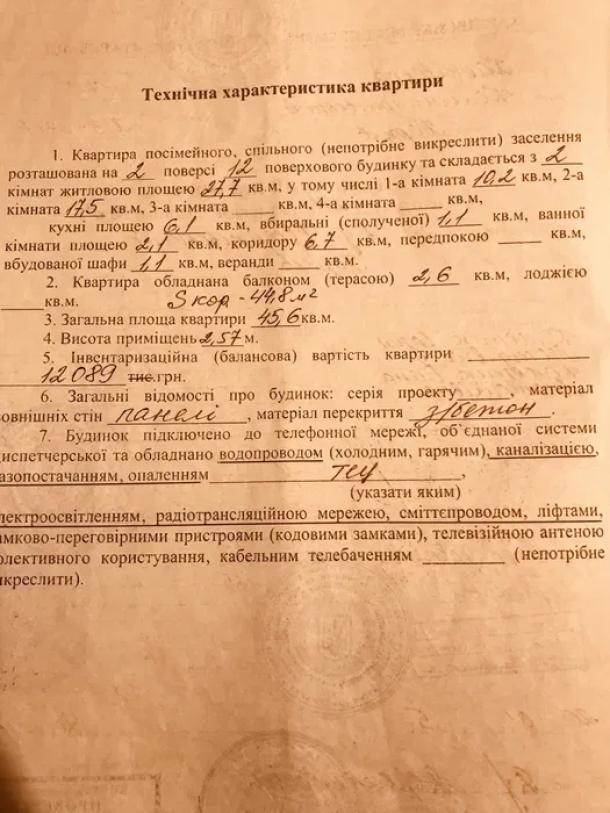 Технічна характеристика квартири
1. Квартира посімейного, спільного (непотрібне викреслити) заселення
розташована на 2 поверсі 12 поверхового будинку та складається з 2
кімнат житловою площею 27,7 кв.м, у тому числі 1-а кімната 10,2 кв.м, 2-а
кімната 17,5 кв.м, 3-а кімната _____ кв.м, 4-а кімната _____ кв.м,
кухні площею 6,1 кв.м, вбиральні (сполученої) 1,1 кв.м, ванної
кімнати площею 2,1 кв.м, коридору 6,7 кв.м, передпокою _____ кв.м,
вбудованої шафи 1,1 кв.м, веранди _____ кв.м.
2. Квартира обладнана балконом (терасою) 2,6 кв.м, лоджією
_____кв.м. S кор - 44,8 м²
3. Загальна площа квартири 45,6 кв.м.
4. Висота приміщень 2,57 м.
5. Інвентаризаційна (балансова) вартість квартири _____
12089 тис.грн.
6. Загальні відомості про будинок: серія проекту_____, матеріал
зовнішніх стін панелі, матеріал перекриття з/бетон.
7. Будинок підключено до телефонної мережі, об`єднаної системи
диспетчерської та обладнано водопроводом (холодним, гарячим), каналізацією,
газопостачанням, опаленням ТЕЦ,
(указати яким)
електроосвітленням, радіотрансляційною мережею, сміттєпроводом, ліфтами,
замково-переговірними пристроями (кодовими замками), телевізійною антеною
колективного користування, кабельним телебаченням _____ (непотрібне
викреслити).